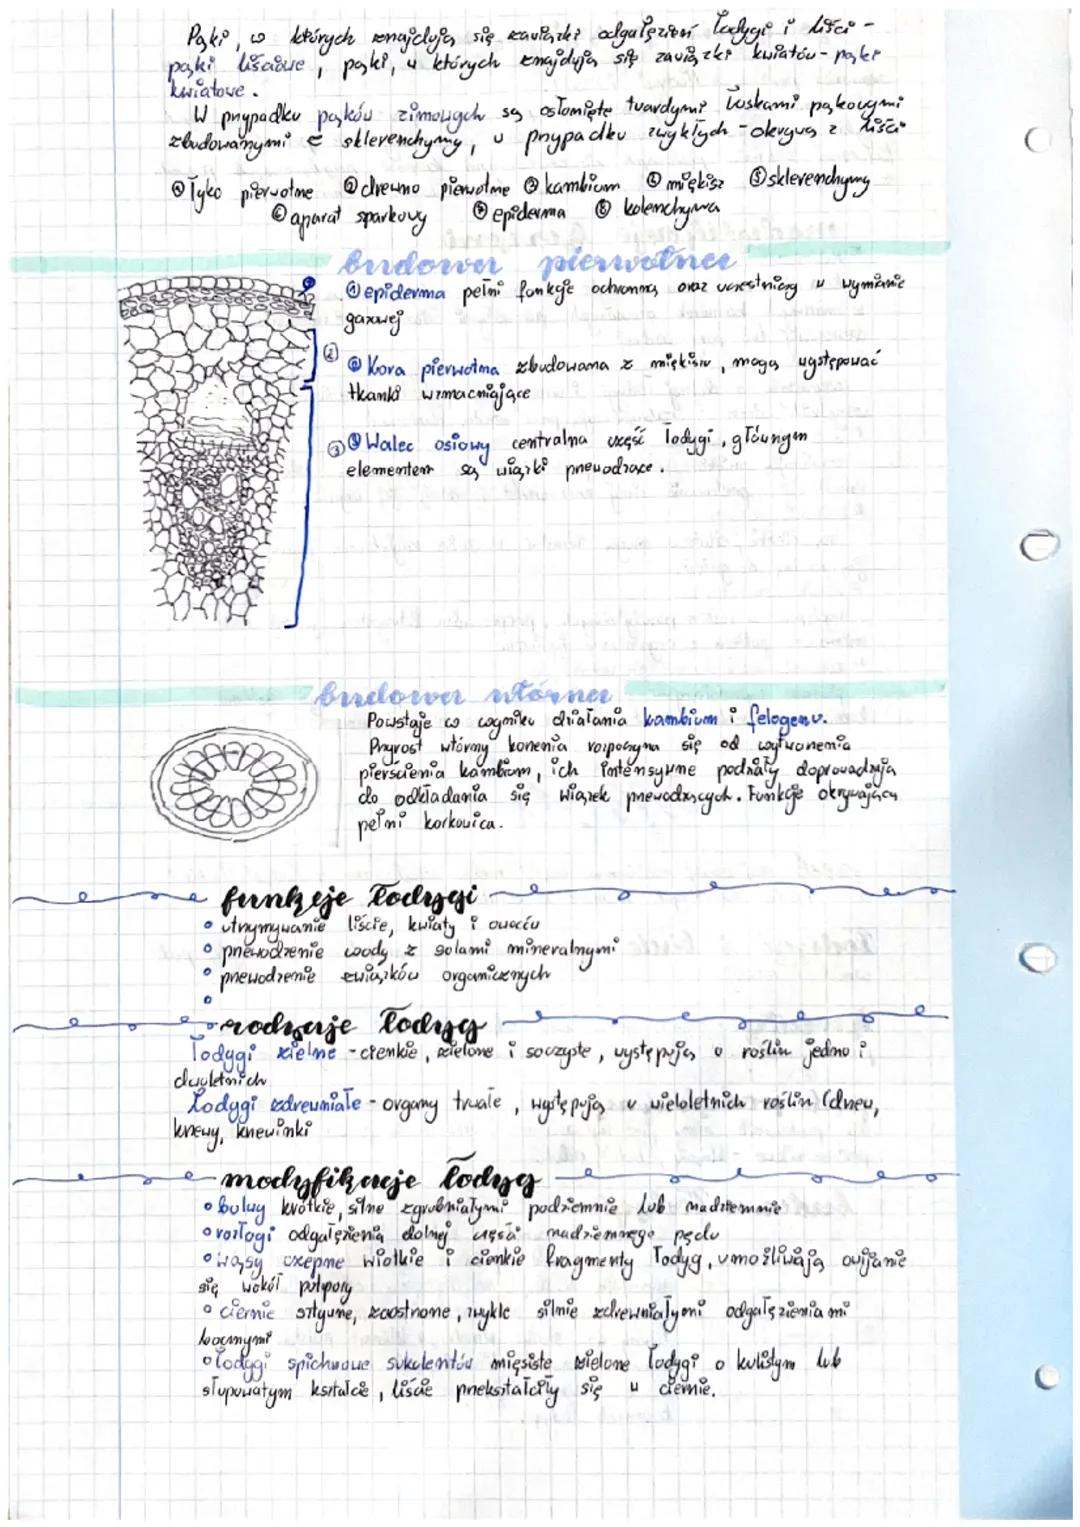 Pąki, w których znajdują się zawiązki odgałęzień łodygi i liści -
pąki liściowe, pąki, w których znajdują się zawiązki kwiatów - pąki
kwiatowe.
W przypadku pąków zimowych są osłonięte twardymi łuskami pąkowymi
zbudowanymi z sklerenchymy, w przypadku zwykłych - okrywa z liści
① Łyko pierwotne ② drewno pierwotne ③ kambium ④ miękisz ⑤ sklerenchyma
⑥ aparat szparkowy ⑦ epiderma ⑧ kolenchyma
budowa pierwotna
① epiderma pełni funkcje ochronną oraz uczestniczy w wymianie
gazowej
②
② Kora pierwotna zbudowana z miękiszu, mogą występować
tkanki wzmacniające
③ ③ Walec osiowy centralna część łodygi, głównym
elementem są wiązki przewodzące.
budowa wtórna
Powstaje w wyniku działania kambium i felogenu.
Przyrost wtórny korzenia rozpoczyna się od wytworzenia
pierścienia kambium, ich intensywne podziały doprowadzają
do odkładania się wiązek przewodzących. Funkcje okrywającą
pełni korkowica.
funkcje łodygi
• utrzymywanie liście, kwiaty i owoców
• przewodzenie wody z solami mineralnymi
• przewodzenie związków organicznych
•
rodzaje łodyg
łodygi zielne - cienkie, zielone i soczyste, występują u roślin jedno i
dwuletnich
Łodygi zdrewniałe - organy trwałe, występują u wieloletnich roślin (drzew,
krzewy, krzewinki
modyfikacje łodyg
• bulwy krótkie, silne zgrubniałymi podziemnie lub nadziemnie
• rozłogi odgałęzienia dolnej części nadziemnego pędu
• wąsy czepne wiotkie i cienkie fragmenty łodyg, umożliwiają owijanie
się wokół podpory
• ciernie sztywne, zaostrzone, zwykle silnie zdrewniałymi odgałęzieniami
bocznymi
• łodygi spichrzowe sukulentów mięsiste zielone łodygi o kulistym lub
słupowatym kształcie, liście przekształciły się w ciernie.